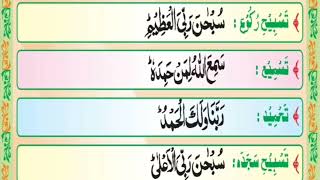 تسبیحِ رکوع: سُبْحٰنَ رَبِّیَ الْعَظِیْمِ ؕ
تسمیع: سَمِعَ اللّٰهُ لِمَنْ حَمِدَهٗ ؕ
تحمید: رَبَّنَا وَلَكَ الْحَمْدُ ؕ
تسبیحِ سجدہ: سُبْحٰنَ رَبِّیَ الْاَعْلٰی ؕ